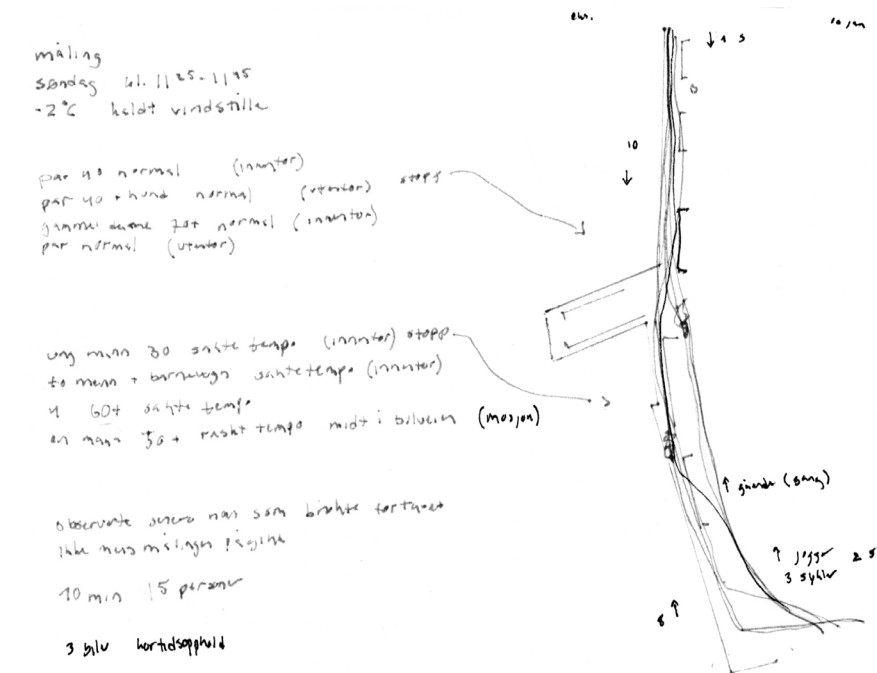 måling
søndag kl. 11 25 - 11 45
-2°C heldt vindstille
par 40 normal (innenfor)
par 40 + hund normal (utenfor) stopp
gammel dame 70+ normal (innenfor)
par normal (utenfor)
ung mann 30 sakte tempo (innenfor) stopp
to menn + barnevogn sakte tempo (innenfor)
4 60+ sakte tempo
en mann 50+ raskt tempo midt i bilveien (mosjon)
observerte senere man som brukte fortauet
ikke mens målingen pågikk
10 min 15 personer
3 biler kortidsopphold
10 jan
↓ 4 5
10
↓
↑ gående (gang)
↑ jogger 2 5
3 sykler
8 ↑